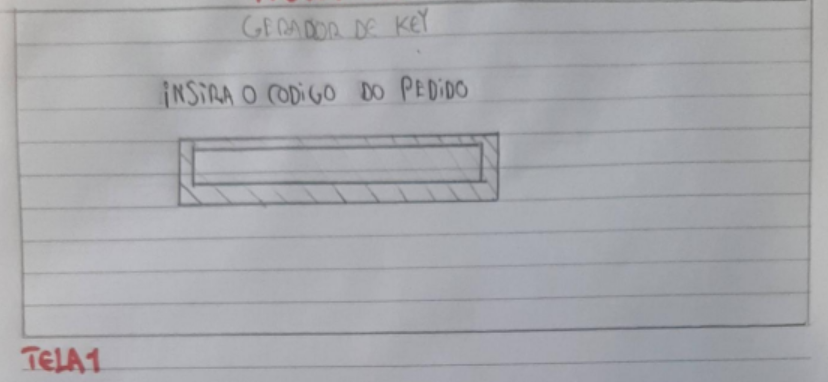 GERADOR DE KEY
iNSiRA O CODiGO DO PEDiDO
TELA 1